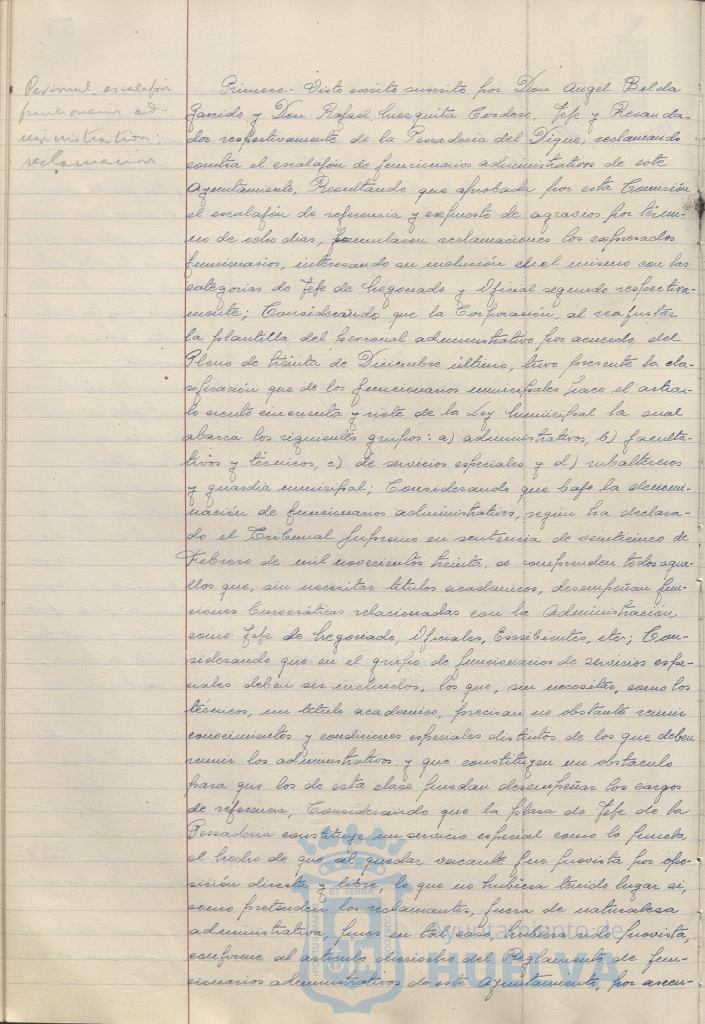 Personal: escalafón
funcionarios ad-
ministration:
reclamación
Primero.- Visto escrito suscrito por Don Angel Belda
Garrido y Don Rafael Cordero, Jefe y Recauda-
dor respectivamente de la Pescaderia del Dique, reclamando
contra el escalafón de funcionarios administrativos de este
Ayuntamiento; Resultando que aprobada por esta Comisión
el escalafón de referencia y expuesto de agravios por térmi-
no de ocho dias, formularon reclamaciones los expresados
funcionarios, interesando su inclusión en el mismo con las
categorias de Jefe de Negociado y Oficial segundo respectiva-
mente; Considerando que la Corporación, al reajustar
la plantilla del personal administrativo por acuerdo del
Pleno de treinta de Diciembre último, tuvo presente la cla-
sificación que de los funcionarios municipales hace el articu-
lo ciento cincuenta y siete de la Ley Municipal la cual
abarca los siguientes grupos: a) administrativos, b) faculta-
tivos y técnicos, c) de servicios especiales y d) subalternos
y guardia municipal; Considerando que bajo la denomi-
nación de funcionarios administrativos, según ha declara-
do el Tribunal Supremo en sentencia de veinticinco de
Febrero de mil novecientos treinta, se comprenden todos aque-
llos que, sin necesitar titulos academicos, desempeñan fun-
ciones burocráticas relacionadas con la Administración
como Jefe de Negociado, Oficiales, Escribientes, etc; Con-
siderando que en el grupo de funcionarios de servicios espe-
ciales deben ser incluidos, los que, sin necesitar, como los
técnicos, un titulo academico, precisan no obstante reunir
conocimientos y condiciones especiales distintos de los que deben
reunir los administrativos y que constituyen un obstaculo
para que los de esta clase puedan desempeñar los cargos
de referencia; Considerando que la plaza de Jefe de la
Pescaderia constituye un servicio especial como lo prueba
el hecho de que al quedar vacante fue provista por opo-
sición directa y libre, lo que no hubiera tenido lugar si,
como pretenden los reclamantes, fuera de naturaleza
administrativa, pues en tal caso, hubiera sido provista,
conforme al articulo dieciocho del Reglamento de fun-
cionarios administrativos de este Ayuntamiento, por ascen-
Ayuntamiento de
HUELVA